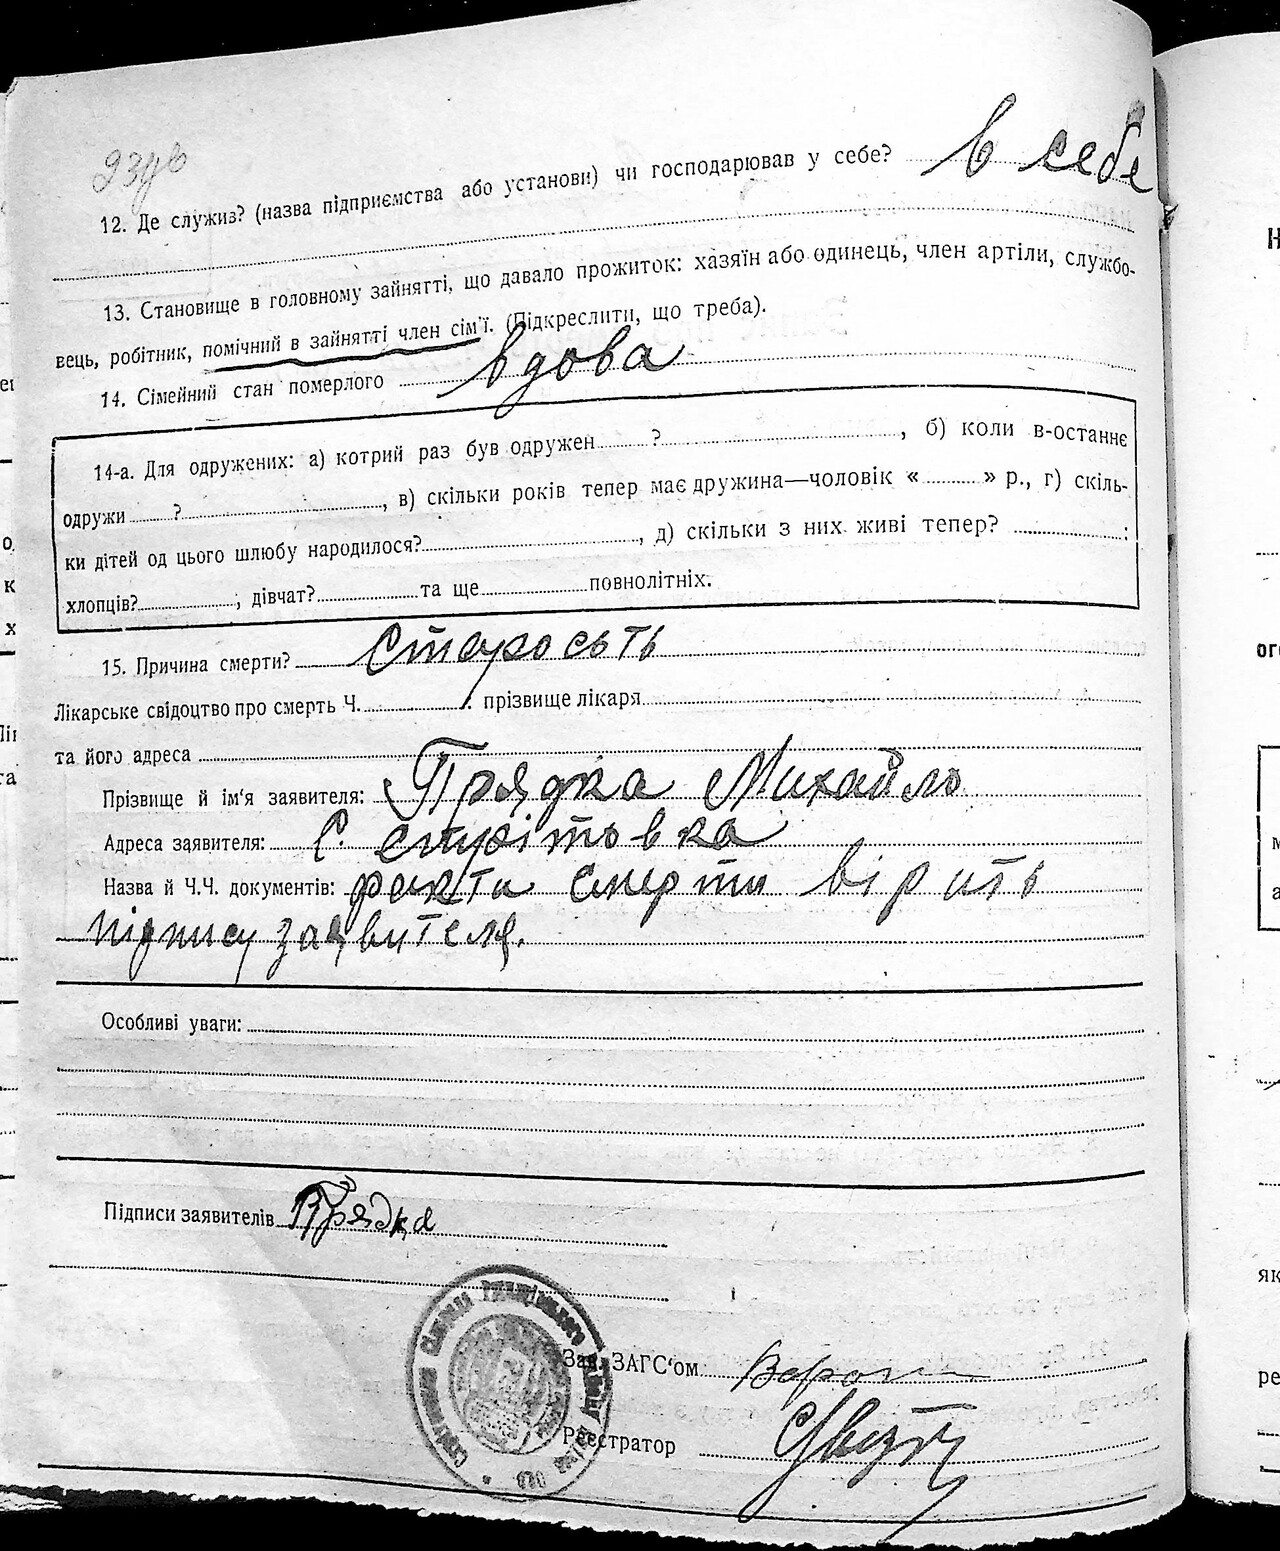 12. Де служив? (назва підприємства або установи) чи господарював у себе? в себе
13. Становище в головному зайнятті, що давало прожиток: хазяїн або одинець, член артіли, службо-
вець, робітник, помічний в зайнятті член сім'ї. (Підкреслити, що треба).
14. Сімейний стан померлого вдова
14-а. Для одружених: а) котрий раз був одружен ?, б) коли в-останнє
одружи ?, в) скільки років тепер має дружина—чоловік « » р., г) скіль-
ки дітей од цього шлюбу народилося?, д) скільки з них живі тепер? :
хлопців? ; дівчат? та ще повнолітніх.
15. Причина смерти? Старосьть
Лікарське свідоцтво про смерть Ч. прізвище лікаря
та його адреса
Прізвище й ім'я заявителя: Прядка Михайло
Адреса заявителя: С.
Назва й Ч.Ч. документів: факта смерти вірить
підпису заявителя.
Особливі уваги:
Підписи заявителів Прядка
Зав. ЗАГС'ом
Реєстратор